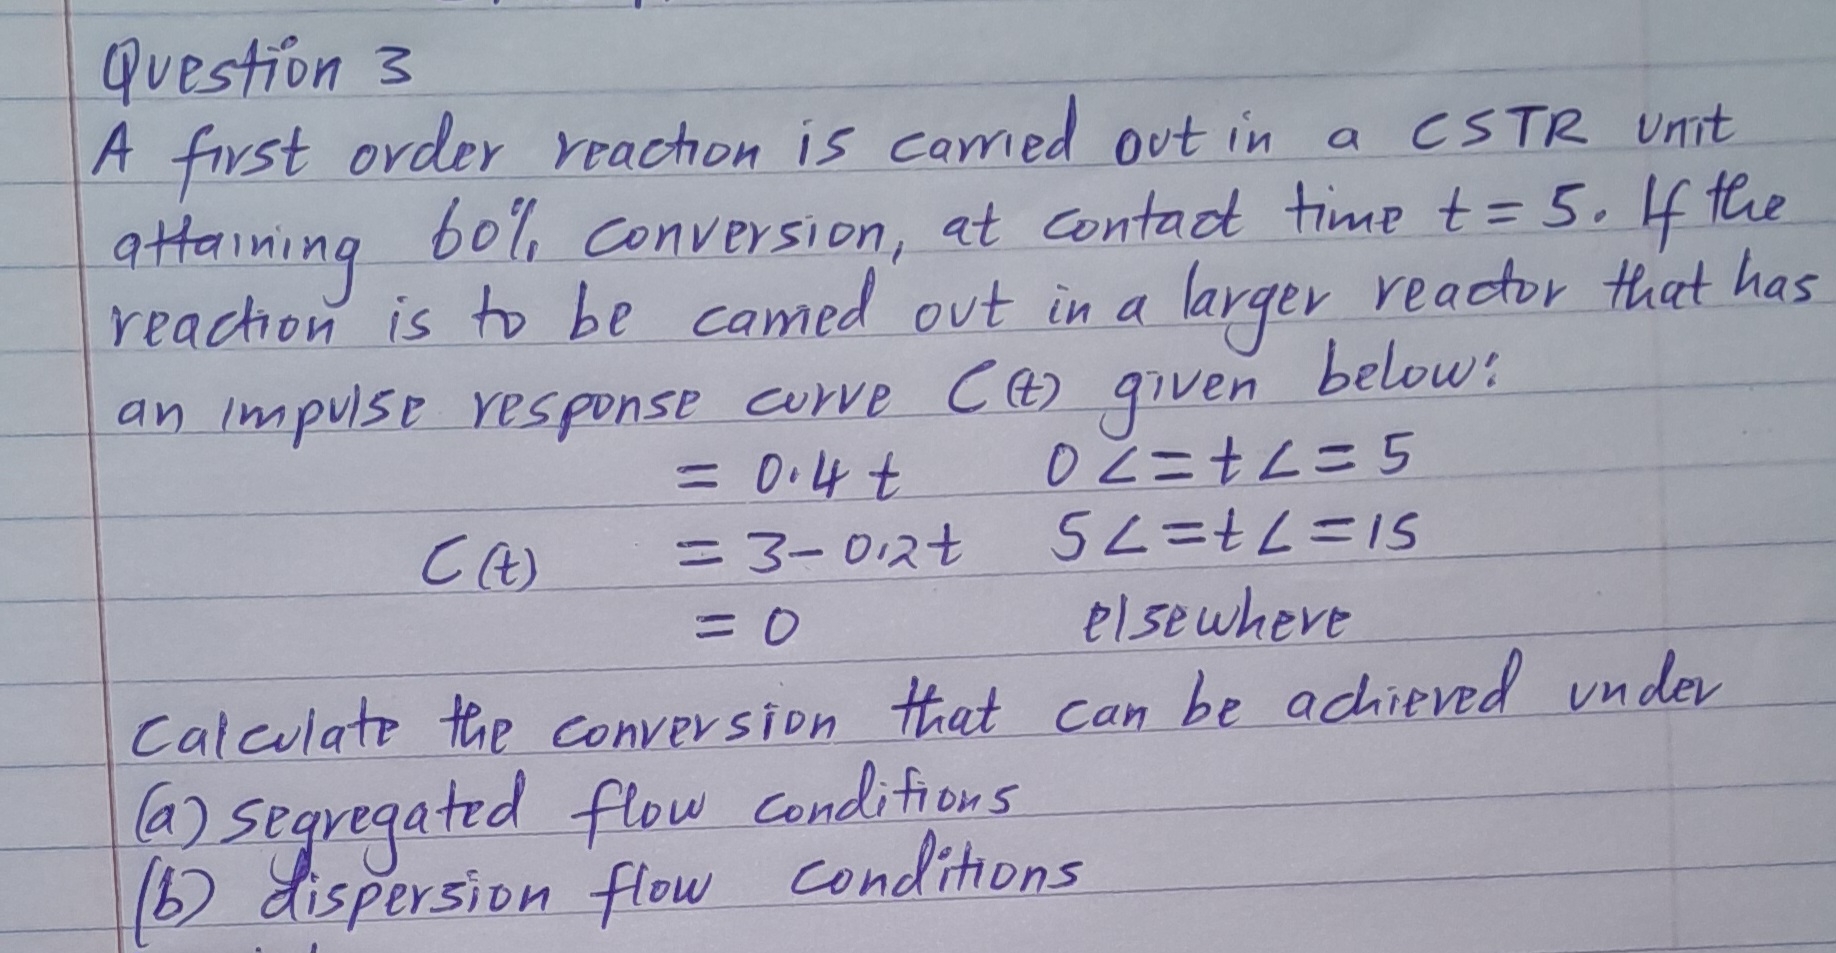 Question 3
A first order reaction is carried out in a CSTR unit
attaining 60% conversion, at contact time t = 5. If the
reaction is to be carried out in a larger reactor that has
an impulse response curve C(t) given below:
= 0.4t 0 <= t <= 5
C(t) = 3 - 0.2t 5 <= t <= 15
= 0 elsewhere
Calculate the conversion that can be achieved under
(a) segregated flow conditions
(b) dispersion flow conditions